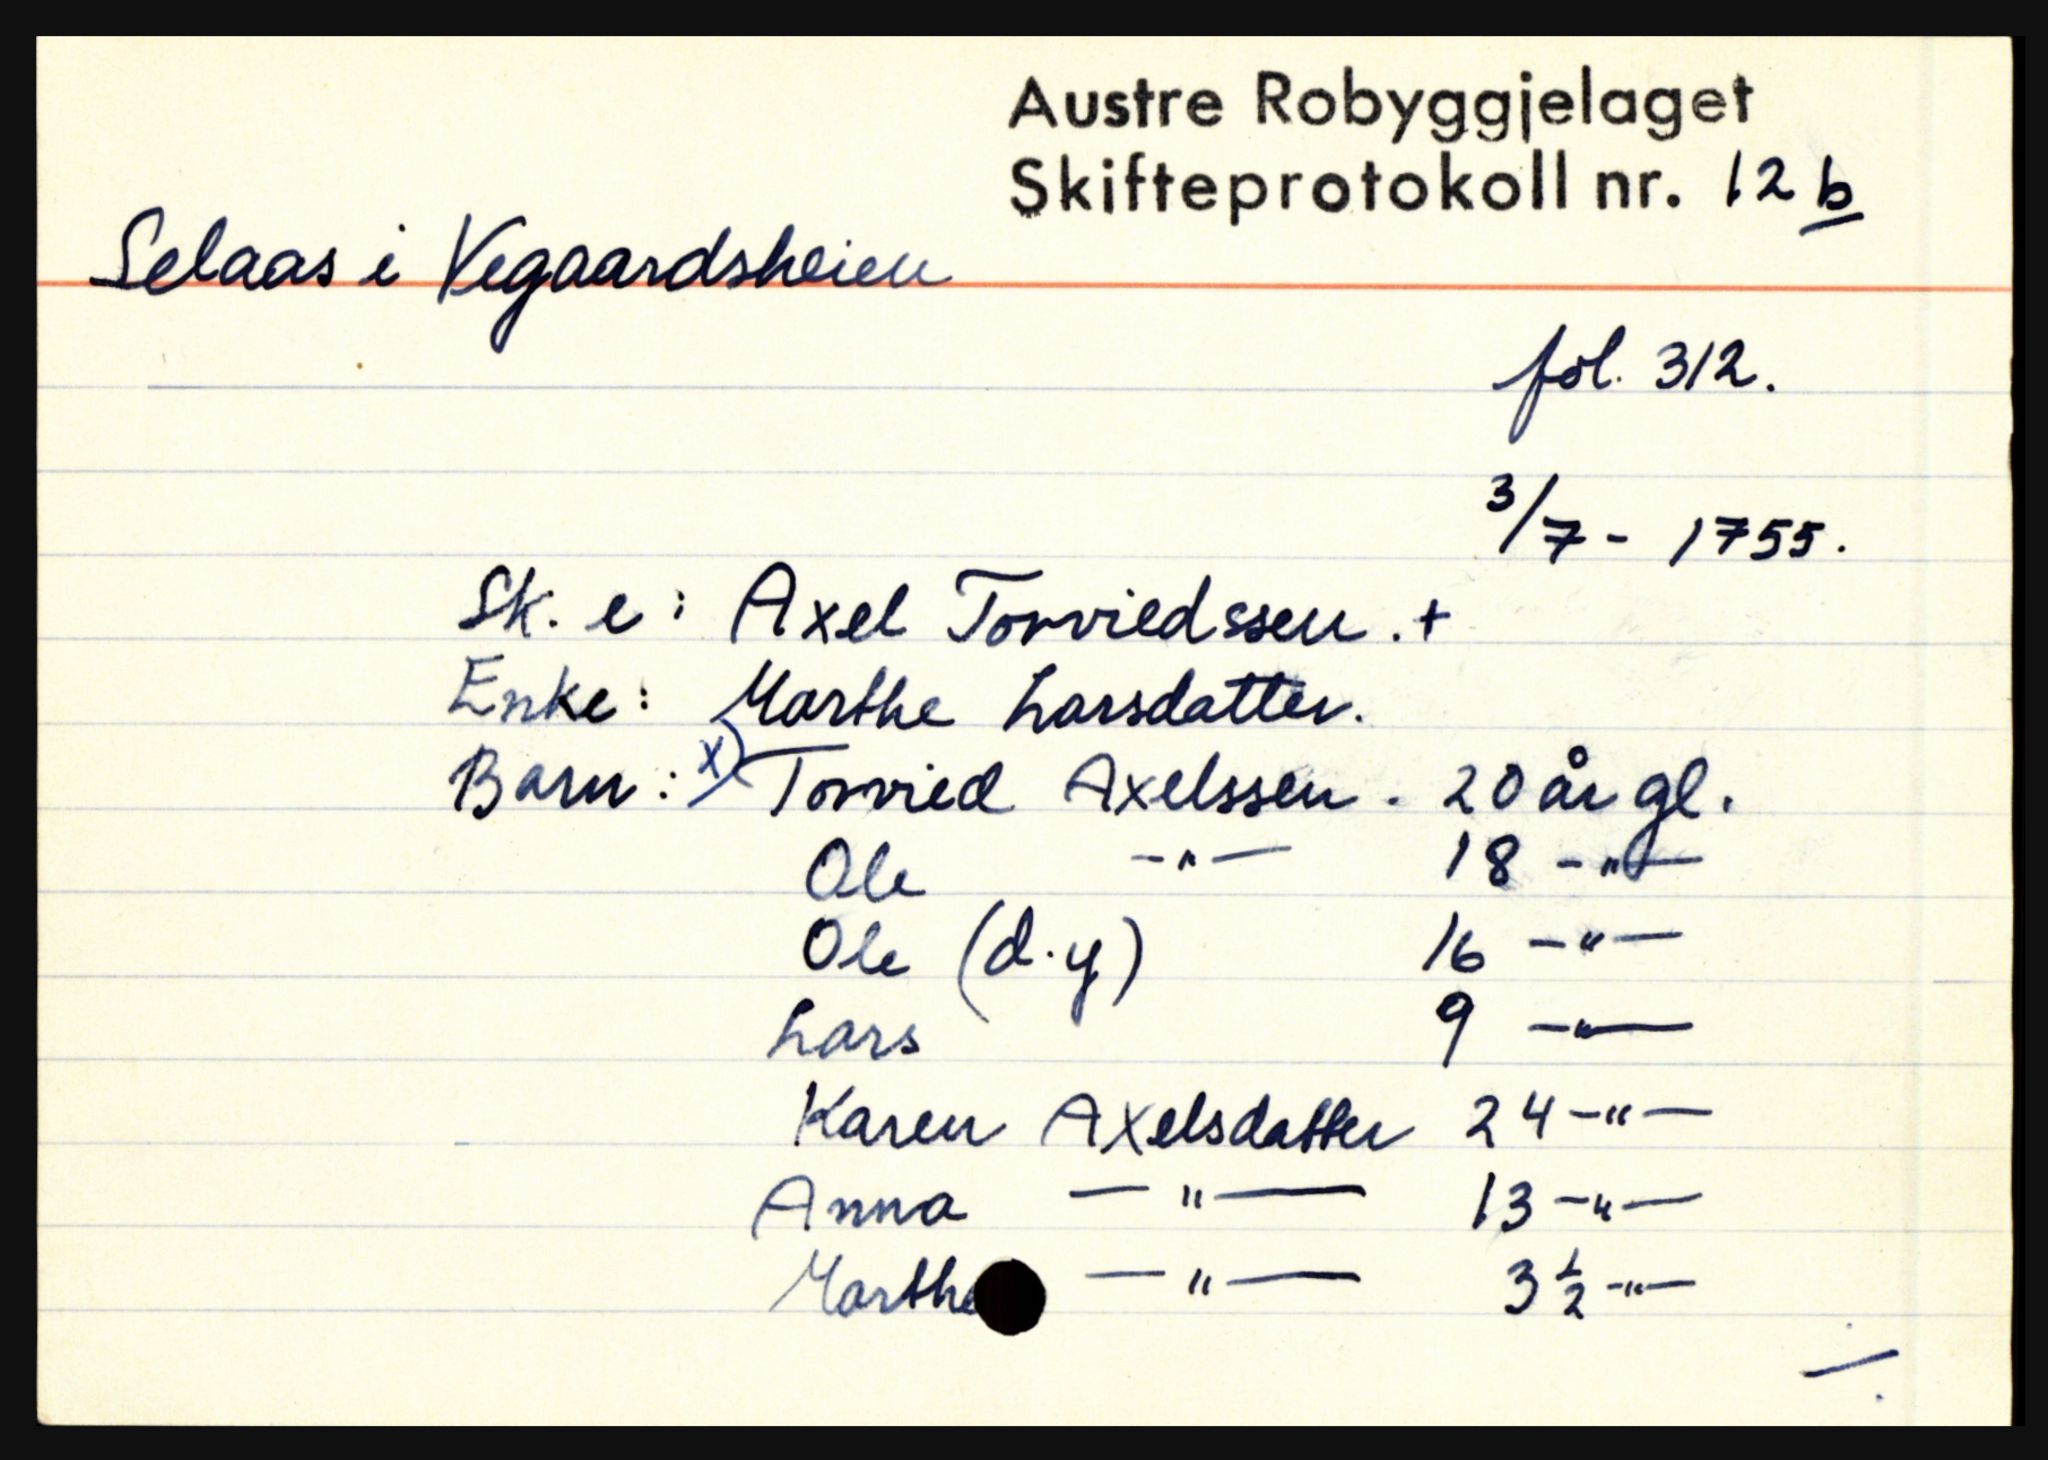 Austre Robyggjelaget
Skifteprotokoll nr. 12 b
Selaas i Vegaardsheien
fol. 312.
3/7 - 1755.
Sk. e: Axel Torviedssen. +
Enke: Marthe Larsdatter.
Barn: x) Torvied Axelssen. 20 år gl.
Ole -"- 18 -"-
Ole (d.y) 16 -"-
Lars 9 -"-
Karen Axelsdatter 24 -"-
Anna -"- 13 -"-
Marthe -"- 3 1/2 -"-